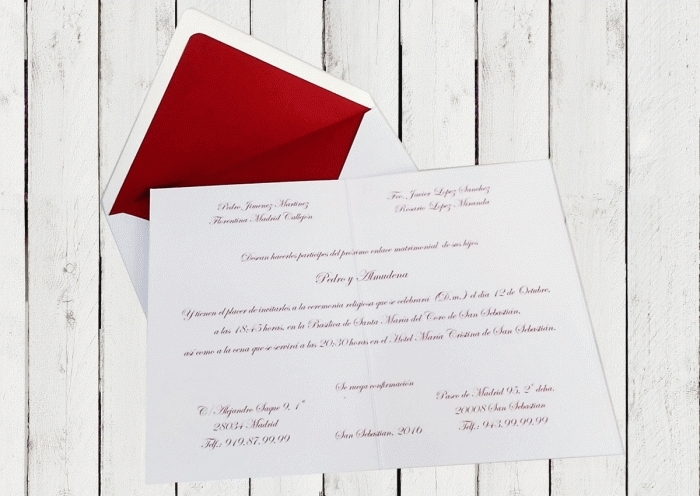 Pedro Jimenez Martinez
Florentina Madrid Callejón
Fco. Javier Lopez Sanchez
Rosario Lopez Miranda
Desean hacerles participes del próximo enlace matrimonial de sus hijos
Pedro y Almudena
Y tienen el placer de invitarles a la ceremonia religiosa que se celebrará (D.m.) el día 12 de Octubre,
a las 18:45 horas, en la Basílica de Santa María del Coro de San Sebastián,
así como a la cena que se servirá a las 20:30 horas en el Hotel María Cristina de San Sebastián.
Se ruega confirmación
C/ Alejandro Saque 9, 1º
28034 Madrid
Telf.: 919.87.99.99
San Sebastian, 2016
Paseo de Madrid 95, 2º dcha.
20008 San Sebastián
Telf.: 943.99.99.99